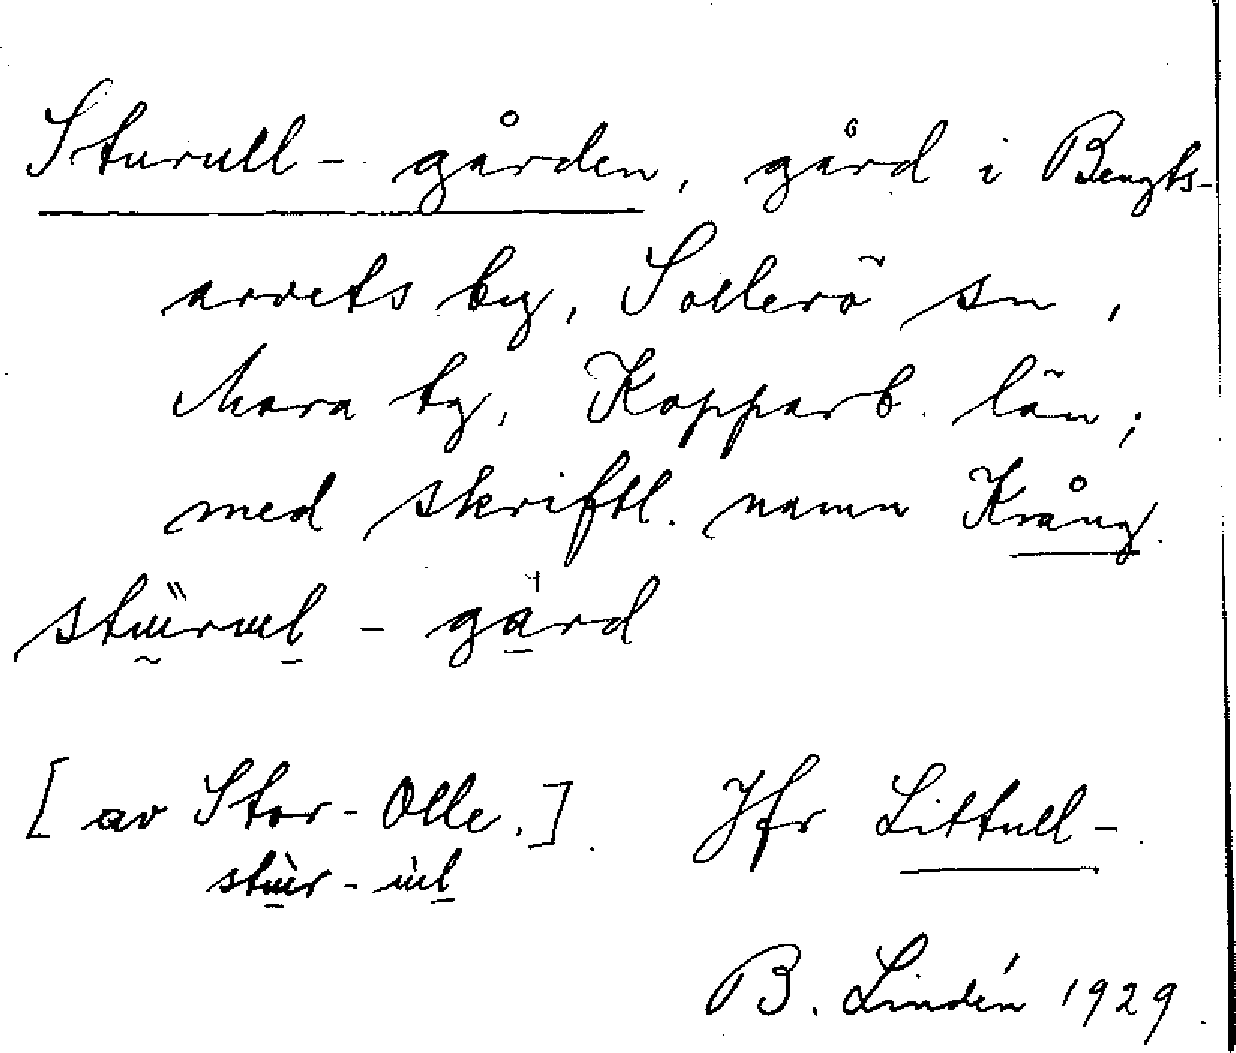 Sturull - gården, gård i Bengts-
arvets by, Sollerö sn,
Mora tg, Kopparb. län;
med skriftl. namn Krång.
- gård
[av Stor-Olle.]. Jfr Littull-.
B. Lindén 1929.